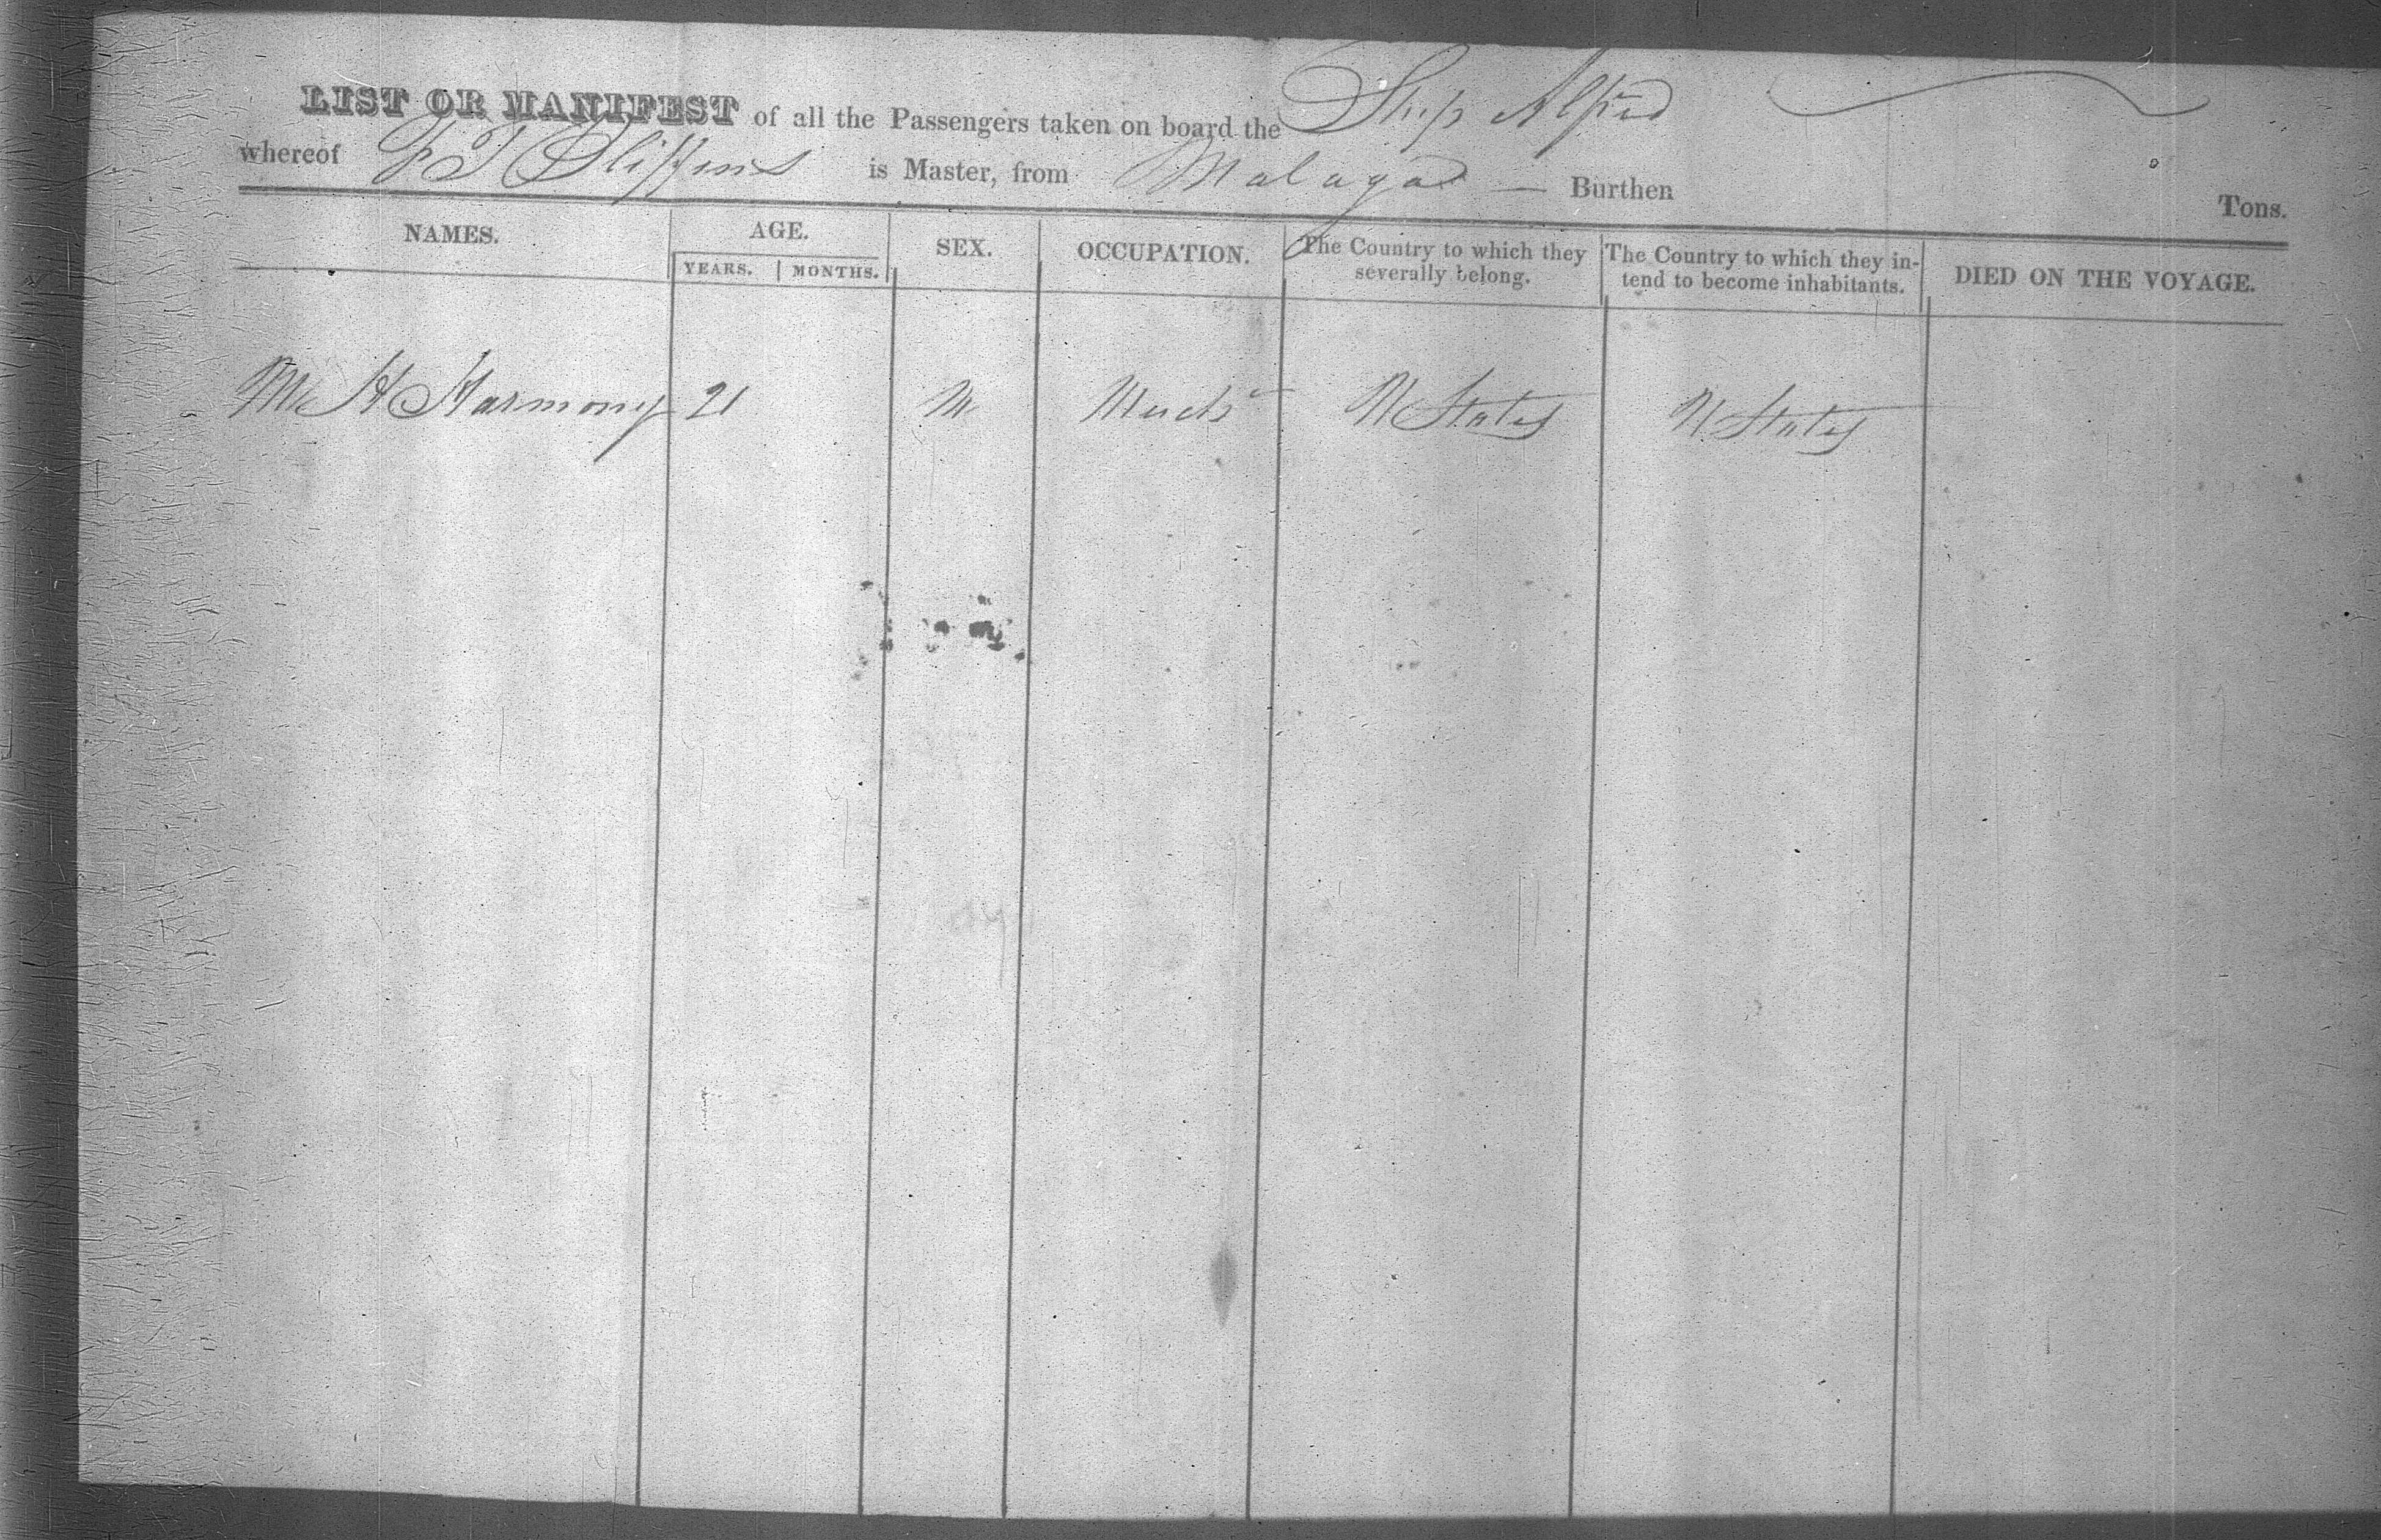 LIST OR MANIFEST of all the Passengers taken on board the Ship Alfred
whereof is Master, from Malaga — Burthen Tons.
NAMES. AGE. SEX. OCCUPATION. The Country to which they severally belong. The Country to which they in-tend to become inhabitants. DIED ON THE VOYAGE.
YEARS. MONTHS.
H Harmony 21 M U States U States